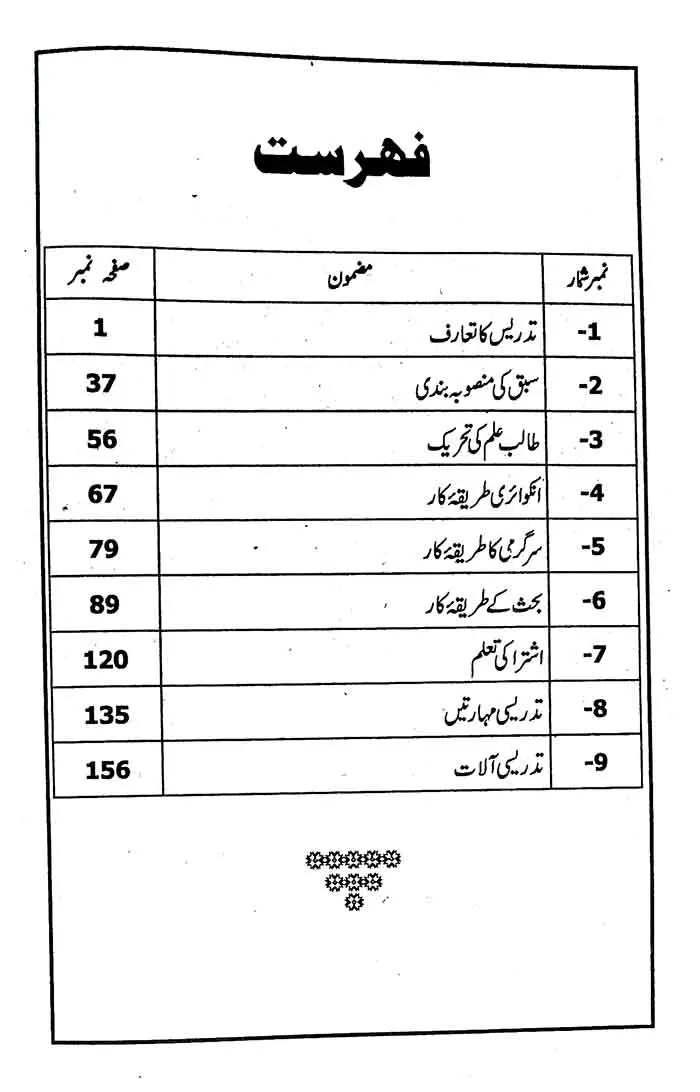 فہرست
نمبر شمار مضمون صفحہ نمبر
-1 تدریس کا تعارف 1
-2 سبق کی منصوبہ بندی 37
-3 طالب علم کی تحریک 56
-4 انکوائری طریقۂ کار 67
-5 سرگرمی کا طریقۂ کار 79
-6 بحث کے طریقۂ کار 89
-7 اشتراکی تعلم 120
-8 تدریسی مہارتیں 135
-9 تدریسی آلات 156